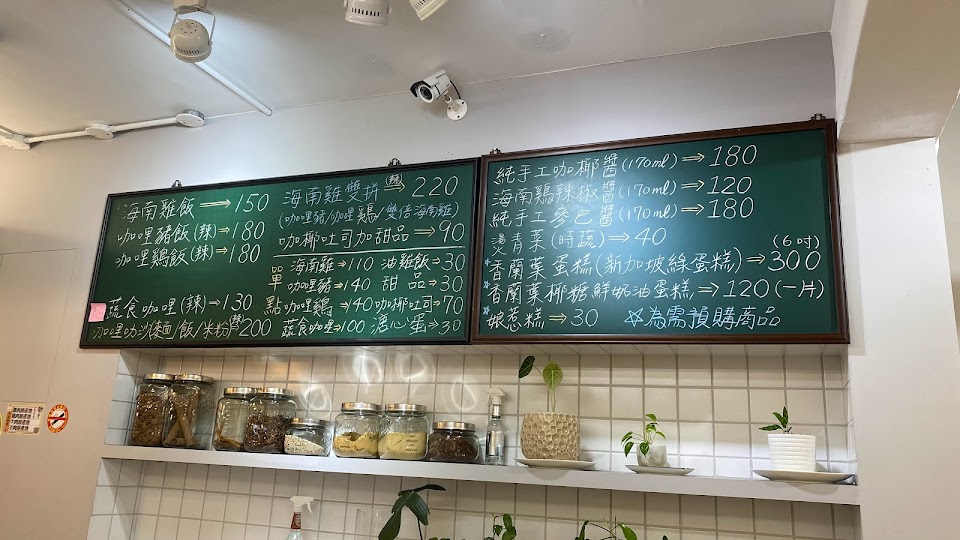 海南雞飯⇒150
咖哩豬飯(辣)⇒180
咖哩鷄飯(辣)⇒180
蔬食咖哩(辣)⇒130
咖哩叻沙湯麵/飯/米粉(辣)200
海南雞雙拼(辣)⇒220
(咖哩豬/咖哩鷄/雙倍海南雞)
咖椰吐司加甜品⇒90
單點
海南雞⇒110 油雞飯⇒30
咖哩豬⇒140 甜品⇒30
咖哩鷄⇒140 咖椰吐司⇒70
蔬食咖哩⇒100 溏心蛋⇒30
純手工咖椰醬(170ml)⇒180
海南鷄辣椒醬(170ml)⇒120
純手工參巴醬(170ml)⇒180
燙青菜(時蔬)⇒40
(6吋)
*香蘭葉蛋糕(新加坡綠蛋糕)⇒300
*香蘭葉椰糖鮮奶油蛋糕⇒120(一片)
*娘惹糕⇒30 ☆為需預購商品